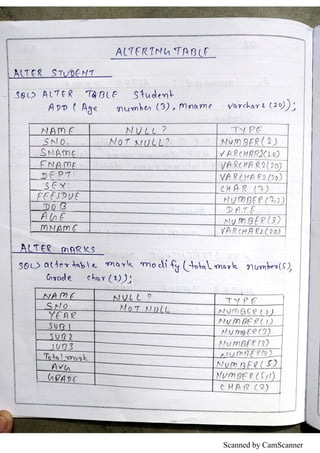 ALTERING TABLE
ALTER STUDENT
SQL> ALTER TABLE Student
ADD (Age number(3), mname varchar2(20));
NAME NULL? TYPE
SNO. NOT NULL? NUMBER(2)
SNAME VARCHAR2(20)
FNAME VARCHAR2(20)
DEPT VARCHAR2(20)
SEX CHAR (7)
FEESDUE NUMBER(7,2)
DOB DATE
AGE NUMBER(3)
MNAME VARCHAR2(20)
ALTER MARKS
SQL> alter table mark modify (total mark number(5),
Grade char(2));
NAME NULL? TYPE
SNO NOT NULL
YEAR NUMBER(1)
SUB1 NUMBER(3)
SUB2 NUMBER(3)
SUB3
Total mark NUMBER(5)
AVG
GRADE CHAR(2)
Scanned by CamScanner